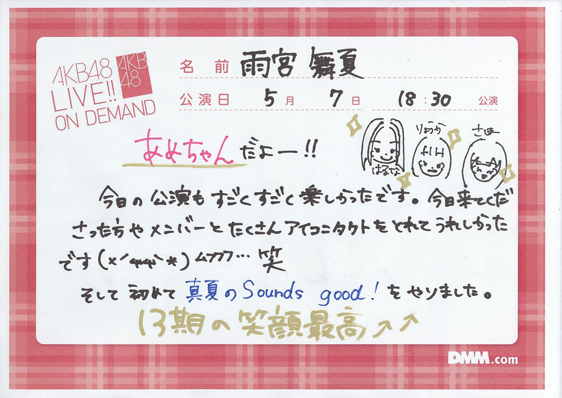 AKB48
LIVE!!
ON DEMAND
AKB
48
名前 雨宮 舞夏
公演日 5月 7日 18:30 公演
あめちゃんだよー!!
はるな
りょうか
さほ
今日の公演もすごくすごく楽しかったです。今日来てくだ
さった方やメンバーとたくさんアイコンタクトをとれてうれしかった
です ムフフ…笑
そして初めて真夏のSounds good!をやりました。
13期の笑顔最高→→
DMM.com